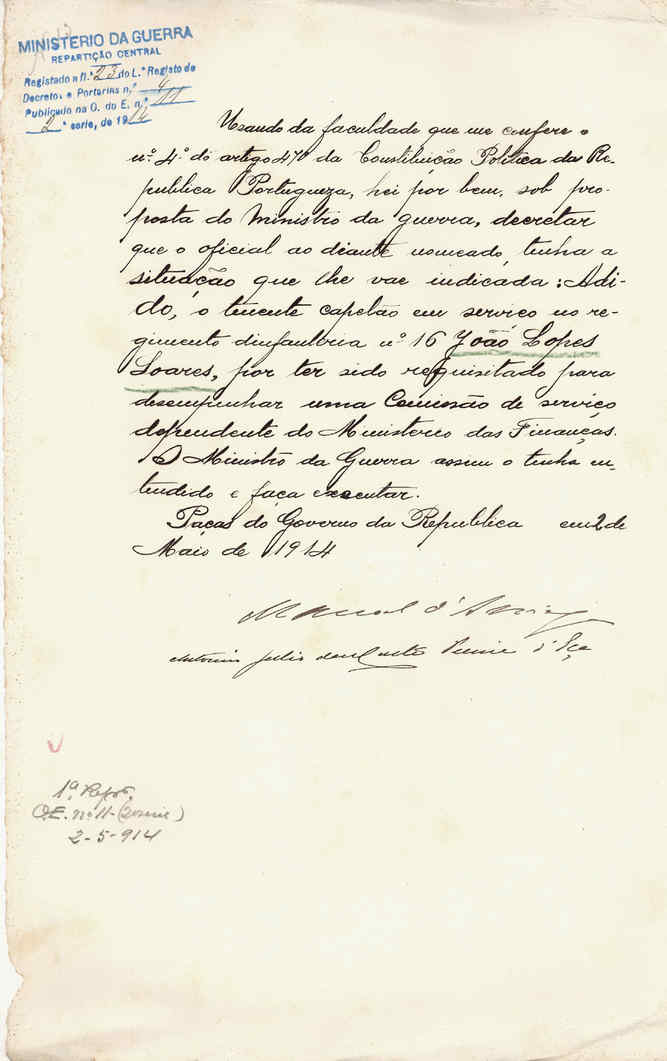 MINISTERIO DA GUERRA
REPARTIÇÃO CENTRAL
Registado n N.º 23 do L.º Registo de
Decretos e Portarias n.º 4
Publicado na O. do E. n.º 11
2ª serie, de 1914
Usando da faculdade que me confere o
nº 4º do artigo 47º da Constituição Politica da Re-
publica Portugueza, hei por bem, sob pro-
posta do Ministro da guerra, decretar
que o oficial ao diante nomeado, tenha a
situação que lhe vae indicada: Adi-
do, o tenente capelão em serviço no re-
gimento dinfanteria nº 16 João Lopes
Soares, por ter sido requisitado para
desempenhar uma Comissão de serviço
dependente do Ministerio das Finanças.
O Ministro da Guerra assim o tenha en-
tendido e faça executar.
Paços do Governo da Republica em 2 de
Maio de 1914
Manuel d'Arriaga
Antonio Julio da Costa Pereira d'Eça
1ª Repar.
O.E. nº 11 (2ª serie)
2-5-914